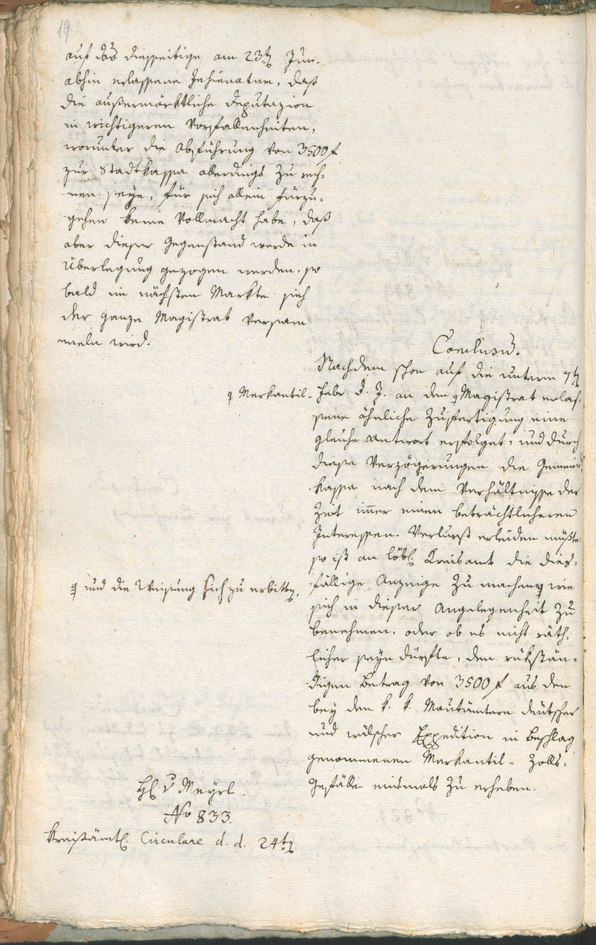 19
auf das diesseitige am 23t Jun.
abhin erlassene Insinuatum, daß
die außermärktliche Deputazion
in wichtigeren Vorfallenheiten,
worunter die Abführung von 3500 f
zur Stadtkassa allerdings zu rech-
nen seye, für sich allein fürzu-
gehen keine Vollmacht habe, daß
aber dieser Gegenstand werde in
Überlegung gezogen werden, so
bald im nächsten Markte sich
der ganze Magistrat versam
meln wird.
Conclusum.
Nachdem schon auf die unterm 7t
Merkantil-
Febr. d. J. an den Magistrat erlas-
sene ähnliche Zufertigung eine
gleiche Antwort erfolget, und durch
diese Verzögerungen die Gemein
Kassa nach dem Verhältnisse der
Zeit immer einen beträchtlicheren
Interessen-Verlurst erleiden müßte
so ist an löbl. Kreisamt die dies-
fällige Anzeige zu machen, wie
und die Weisung sich zu erbitten,
sich in dieser Angelegenheit zu
benehmen, oder ob es nicht räth-
licher seyn dürfte, den rükstän-
digen Betrag von 3500 f aus den
bey den k. k. Mautämtern deutscher
und wälscher Expedition in Beschlag
genommenen Merkantil-Zolls-
Gefälle einsmals zu erheben.
H v Mayrl.
No 833.
Kreisämtl. Circulare d. d. 24t